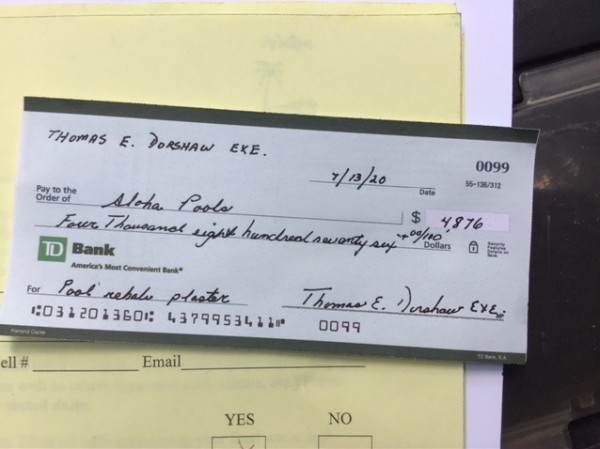 THOMAS E. DORSHAW EXE.
0099
7/13/20
Date
55-136/312
Pay to the
Order of
Aloha Pools
$ 4,876
Four Thousand eight hundred seventy six + 00/100 Dollars
TD Bank
America's Most Convenient Bank®
For Pool rehab plaster
Thomas E. Dorshaw EXE.
⑆031201360⑆ 4379953411⑈ 0099
Harland Clarke
TD Bank, N.A.
ell # Email
YES NO